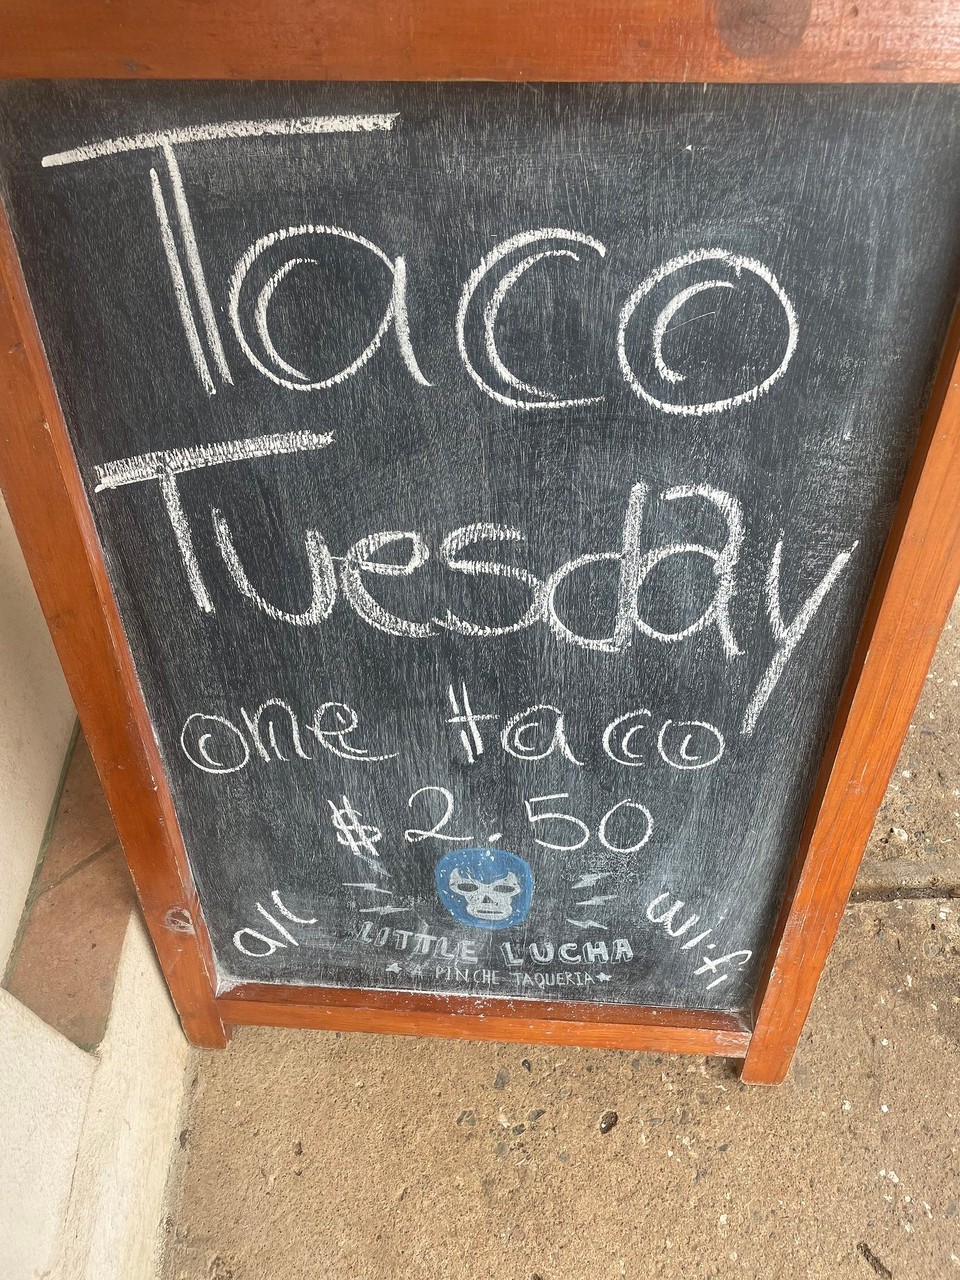 Taco
Tuesday
one taco
$2.50
a/c
wi.fi
LITTLE LUCHA
★ A PINCHE TAQUERIA ★